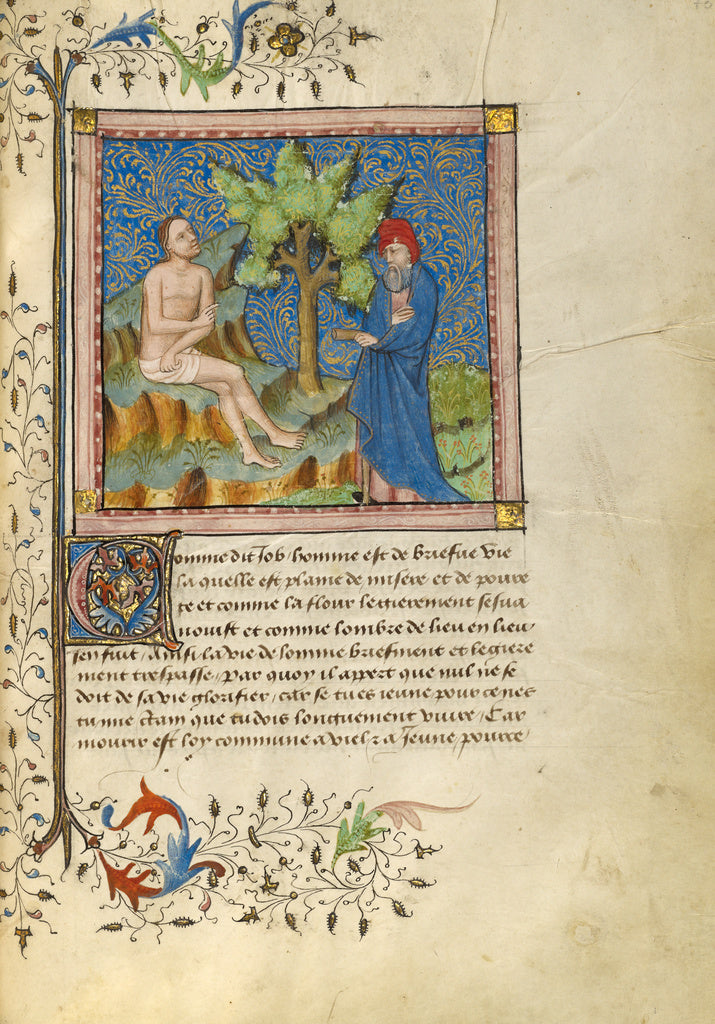 Comme dit Job / homme est de briefue vie
la quelle est plaine de misere et de poure
te et comme la flour legierement sesua
nouist et comme lombre de lieu en lieu
sen fuit / Ainsi la vie de lomme briefment et legiere
ment trespasse / par quoy il appert que nul ne se
doit de sa vie glorifier / car se tu es ieune pour ce nes
tu mie ctain que tu dois longuement viure / Car
mourir est loy commune a viel z a Jeune / poure